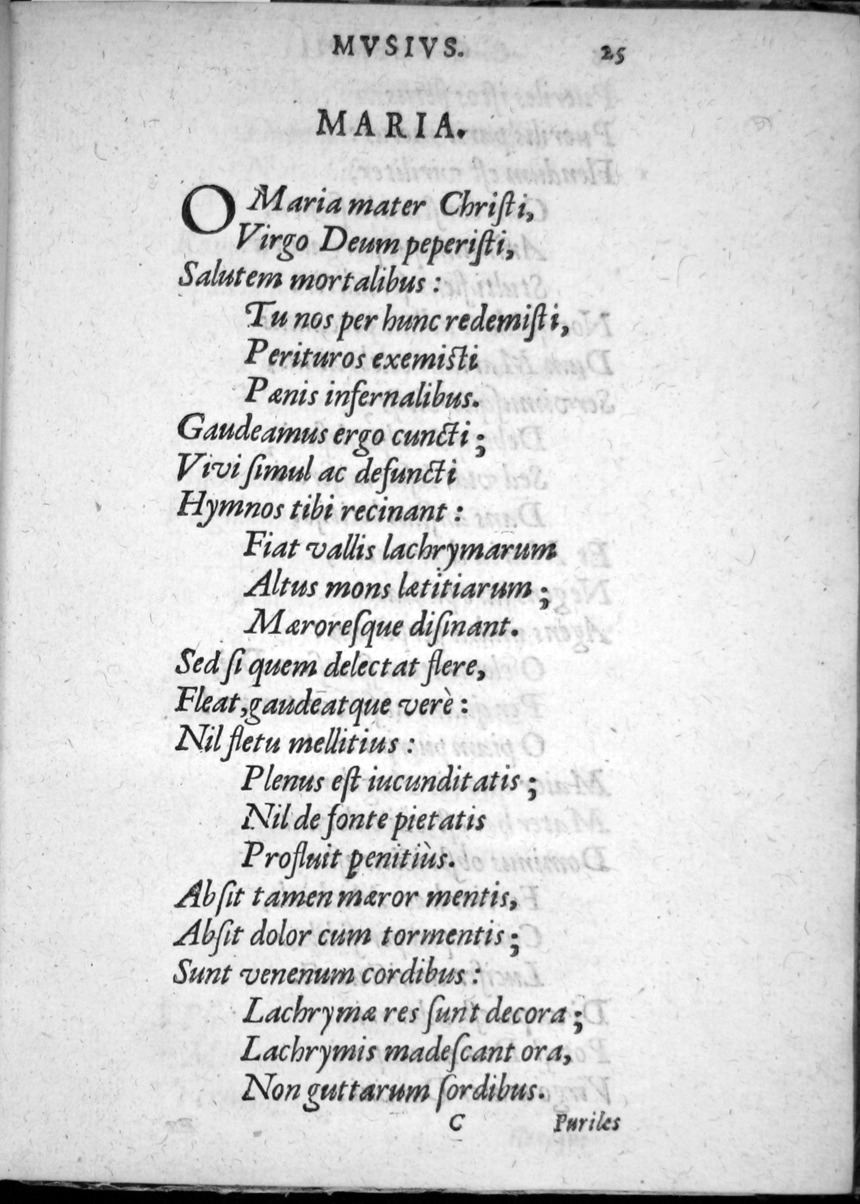 MVSIVS. 25
MARIA.
O Maria mater Chriſti,
Virgo Deum peperiſti,
Salutem mortalibus :
Tu nos per hunc redemiſti,
Perituros exemiſti
Pænis infernalibus.
Gaudeamus ergo cuncti ;
Vivi ſimul ac defuncti
Hymnos tibi recinant :
Fiat vallis lachrymarum
Altus mons lætitiarum ;
Mæroreſque diſinant.
Sed ſi quem delectat flere,
Fleat, gaudeatque verè :
Nil fletu mellitius :
Plenus eſt iucunditatis ;
Nil de fonte pietatis
Profluit penitiùs.
Abſit tamen mæror mentis,
Abſit dolor cum tormentis ;
Sunt venenum cordibus :
Lachrymæ res ſunt decora ;
Lachrymis madeſcant ora,
Non guttarum ſordibus.
C Puriles